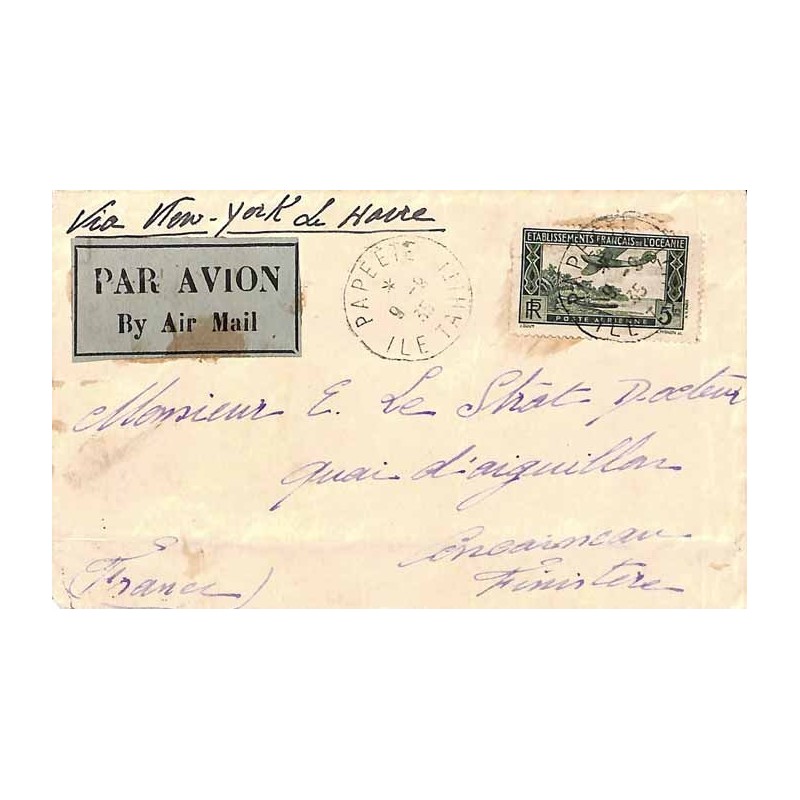 Via New-York Le Havre
PAR AVION
By Air Mail
PAPEETE
9 -8
35
ILE TAHITI
ETABLISSEMENTS FRANÇAIS DE L'OCEANIE
RF
5F
POSTE AERIENNE
Monsieur E. Le Strat Docteur
Quai d'aiguillon
Concarneau
(France) Finistère